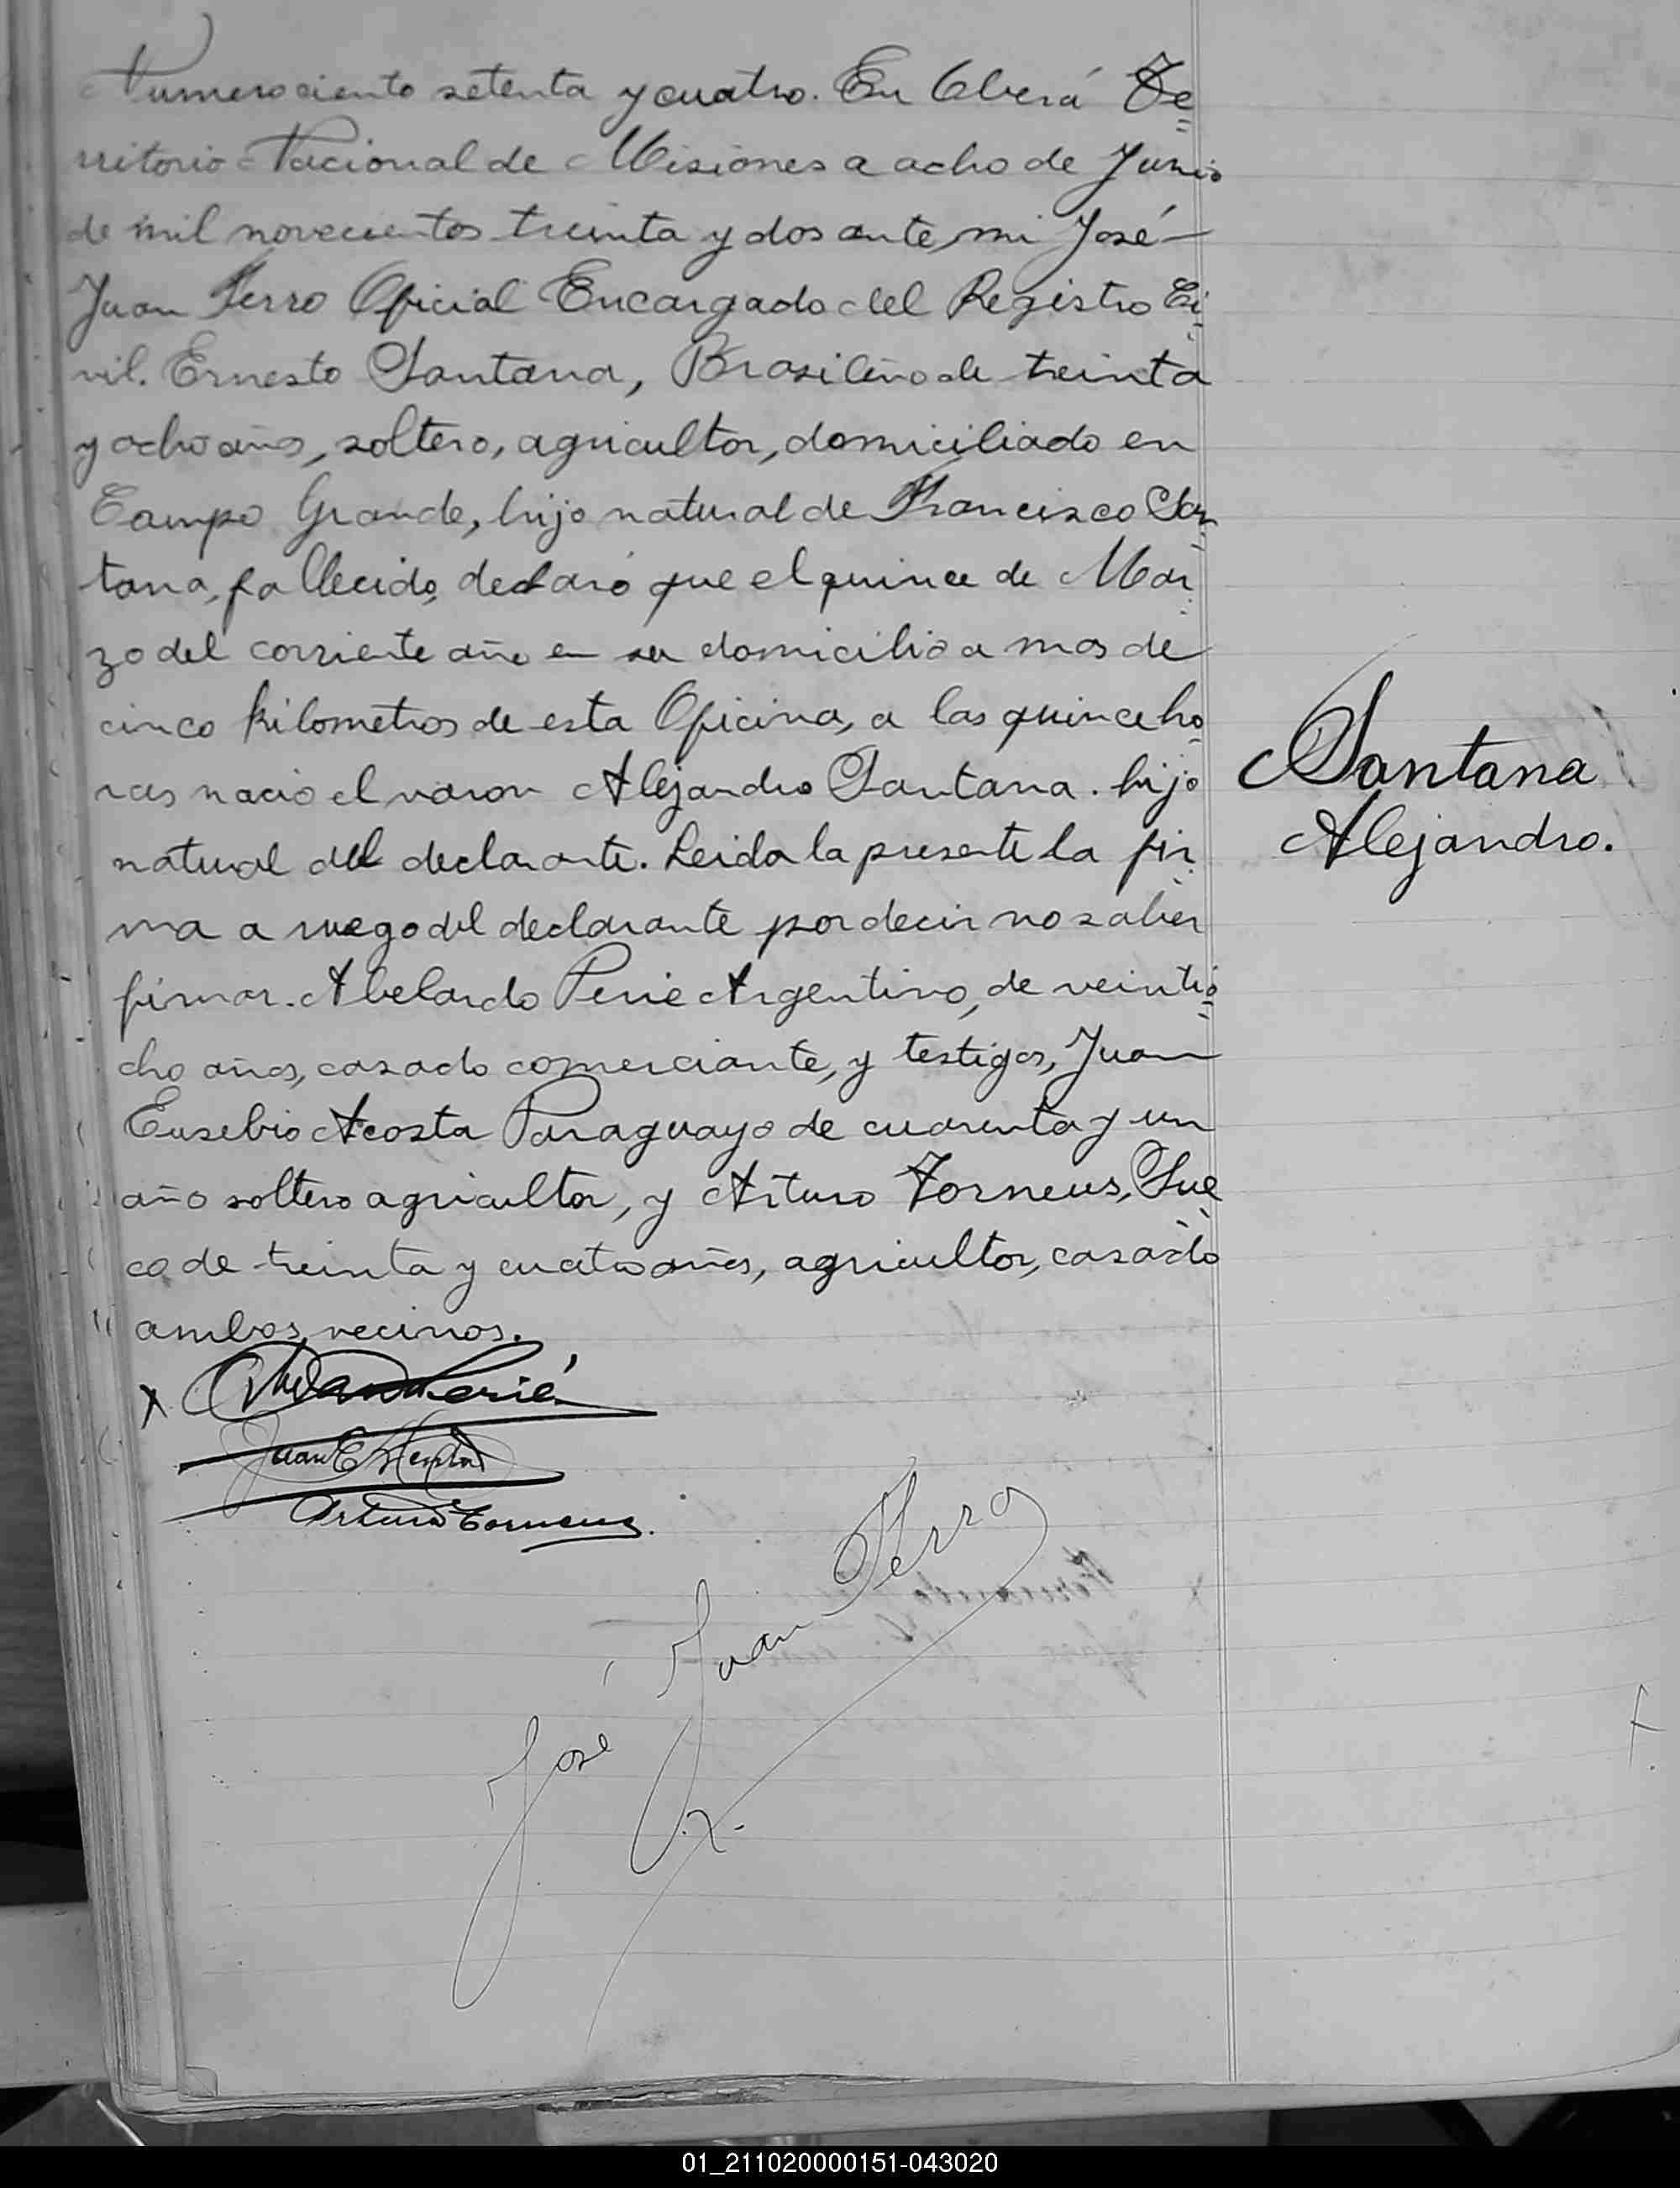 Numero ciento setenta y cuatro. En Oberá Te=
rritorio Nacional de Misiones a ocho de Junio
de mil novecientos treinta y dos ante mi José
Juan Ferro Oficial Encargado del Registro Ci-
vil. Ernesto Santana, Brasileño de treinta
y ocho años, soltero, agricultor, domiciliado en
Campo Grande, hijo natural de Francisco San-
tana, fallecido, declaró que el quince de Mar-
zo del corriente año en su domicilio a mas de
cinco kilometros de esta Oficina, a las quince ho-
ras nacio el varon Alejandro Santana. hijo
natural del declarante. Leida la presente la fir-
ma a ruego del declarante por decir no saber
firmar. Abelardo Perie Argentino, de veintio=
cho años, casado comerciante, y testigos, Juan
Eusebio Acosta Paraguayo de cuarenta y un
año soltero agricultor, y Arturo Torneus, Sue-
co de treinta y cuatro años, agricultor, casado
ambos vecinos.
Santana
Alejandro.
Juan E
Arturo Torneus.
José Juan Ferro
01_211020000151-043020